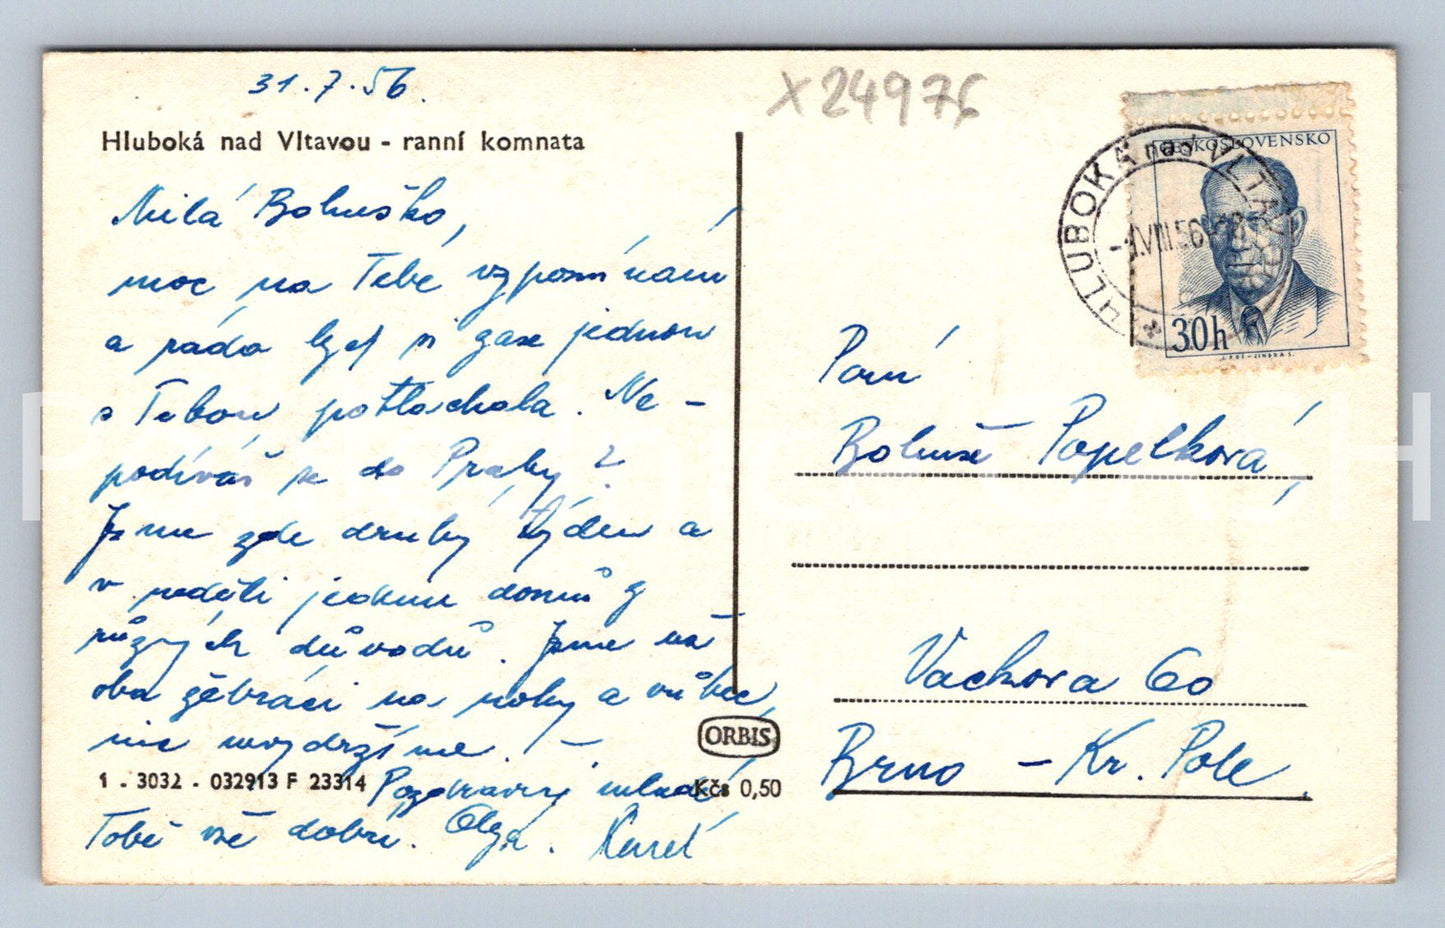 31.7.56.
X 24976
Hluboká nad Vltavou - ranní komnata
Milá Bohuško,
moc na Tebe vzpomínám
a ráda bych si zase jednou
s Tebou potlachala. Ne-
podíváš se do Prahy?
Jsme zde druhý týden a
v neděli jedeme domů z
různých důvodů. Jsme už
oba zěbráci na nohy a vůbec
nic nevydržíme. -
Pozdravuj mladé,
Tobě vše dobré. Olga. Karel
1 . 3032 - 032913 F 23314
ORBIS
Kčs 0,50
ČESKOSLOVENSKO
30h
HLUBOKÁ nad VLTAVOU
-1.VIII.56-18
Paní
Bohuše Popelková,
Vackova 60
Brno - Kr. Pole